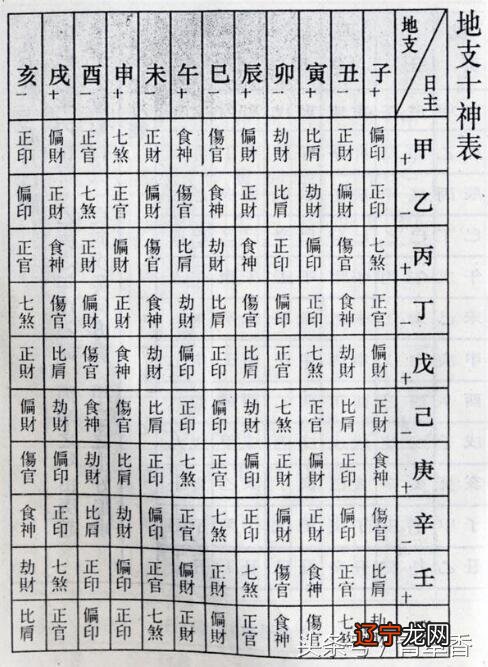 地支十神表
地支 日主
子 丑 寅 卯 辰 巳 午 未 申 酉 戌 亥
+ − + − + − + − + − + −
甲+ 偏印 正財 比肩 劫財 偏財 傷官 食神 正財 七煞 正官 偏財 正印
乙− 正印 偏財 劫財 比肩 正財 食神 傷官 偏財 正官 七煞 正財 偏印
丙+ 七煞 傷官 偏印 正印 食神 劫財 比肩 傷官 偏財 正財 食神 正官
丁− 正官 食神 正印 偏印 傷官 比肩 劫財 食神 正財 偏財 傷官 七煞
戊+ 偏財 劫財 七煞 正官 比肩 正印 偏印 劫財 食神 傷官 比肩 正財
己− 正財 比肩 正官 七煞 劫財 偏印 正印 比肩 傷官 食神 劫財 偏財
庚+ 食神 正印 偏財 正財 偏印 正官 七煞 正印 比肩 劫財 偏印 傷官
辛− 傷官 偏印 正財 偏財 正印 七煞 正官 偏印 劫財 比肩 正印 食神
壬+ 比肩 正官 食神 傷官 七煞 正財 偏財 正官 偏印 正印 七煞 劫財
傷官 食神 正官 偏財 正財 七煞 正印 偏印 正官 比肩
辽宁龙网